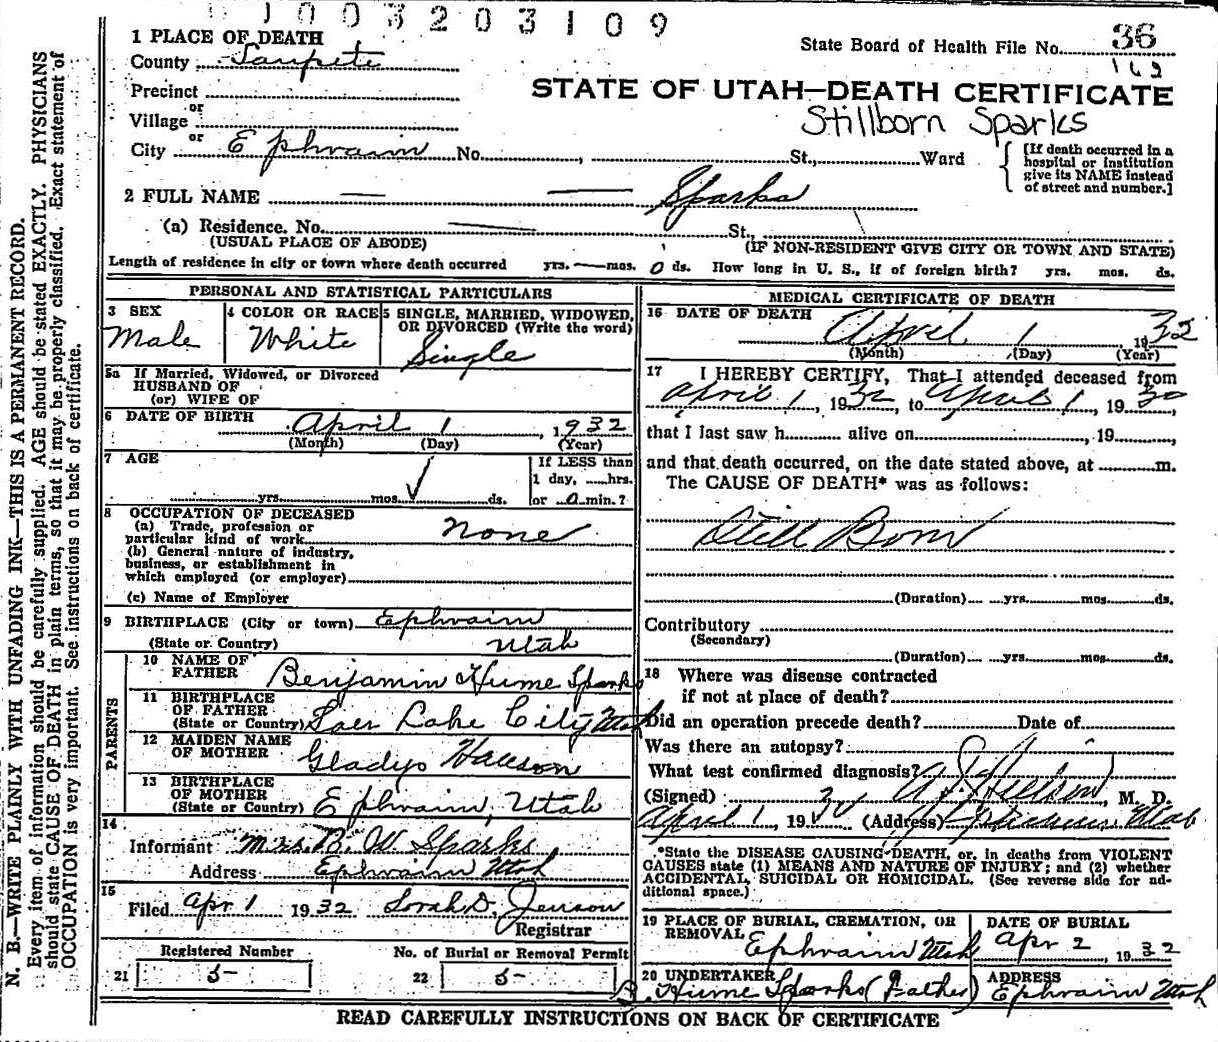 1003203109
1 PLACE OF DEATH
State Board of Health File No. 36
County Sanpete
163
Precinct
STATE OF UTAH—DEATH CERTIFICATE
or
Village
Stillborn Sparks
or
City Ephraim No. , St., Ward
[If death occurred in a
hospital or institution
give its NAME instead
of street and number.]
2 FULL NAME — — Sparks
(a) Residence. No. St.,
(USUAL PLACE OF ABODE) (IF NON-RESIDENT GIVE CITY OR TOWN AND STATE)
Length of residence in city or town where death occurred yrs. — mos. 0 ds. How long in U. S., if of foreign birth? yrs. mos. ds.
PERSONAL AND STATISTICAL PARTICULARS
3 SEX
Male
4 COLOR OR RACE
White
5 SINGLE, MARRIED, WIDOWED,
OR DIVORCED (Write the word)
Single
5a If Married, Widowed, or Divorced
HUSBAND OF
(or) WIFE OF
6 DATE OF BIRTH
April 1, 1932
(Month) (Day) (Year)
7 AGE
yrs. mos. ds.
If LESS than
1 day, hrs.
or 0 min.?
8 OCCUPATION OF DECEASED
(a) Trade, profession or
particular kind of work none
(b) General nature of industry,
business, or establishment in
which employed (or employer)
(c) Name of Employer
9 BIRTHPLACE (City or town) Ephraim
(State or Country) Utah
PARENTS
10 NAME OF
FATHER Benjamin Hume Sparks
11 BIRTHPLACE
OF FATHER
(State or Country) Salt Lake City Utah
12 MAIDEN NAME
OF MOTHER Gladys Hanson
13 BIRTHPLACE
OF MOTHER
(State or Country) Ephraim, Utah
14
Informant Mrs. B. W. Sparks
Address Ephraim Utah
15
Filed Apr 1 1932 Sorah D. Jenson
Registrar
Registered Number
21 5-
No. of Burial or Removal Permit
22 5-
MEDICAL CERTIFICATE OF DEATH
16 DATE OF DEATH
April 1 1932
(Month) (Day) (Year)
17 I HEREBY CERTIFY, That I attended deceased from
April 1, 1932, to April 1, 1932,
that I last saw h alive on , 19 ,
and that death occurred, on the date stated above, at m.
The CAUSE OF DEATH* was as follows:
Still Born
(Duration) yrs. mos. ds.
Contributory
(Secondary)
(Duration) yrs. mos. ds.
18 Where was disease contracted
if not at place of death?
Did an operation precede death? Date of
Was there an autopsy?
What test confirmed diagnosis?
(Signed) , M. D.
April 1, 19 (Address) Ephraim Utah
*State the DISEASE CAUSING DEATH, or, in deaths from VIOLENT
CAUSES state (1) MEANS AND NATURE OF INJURY; and (2) whether
ACCIDENTAL, SUICIDAL OR HOMICIDAL. (See reverse side for ad-
ditional space.)
19 PLACE OF BURIAL, CREMATION, OR
REMOVAL Ephraim Utah
DATE OF BURIAL
Apr 2, 1932
20 UNDERTAKER
B. Hume Sparks (Father)
ADDRESS
Ephraim Utah
READ CAREFULLY INSTRUCTIONS ON BACK OF CERTIFICATE
N. B.—WRITE PLAINLY WITH UNFADING INK—THIS IS A PERMANENT RECORD.
Every item of information should be carefully supplied. AGE should be stated EXACTLY. PHYSICIANS
should state CAUSE OF DEATH in plain terms, so that it may be properly classified. Exact statement of
OCCUPATION is very important. See instructions on back of certificate.